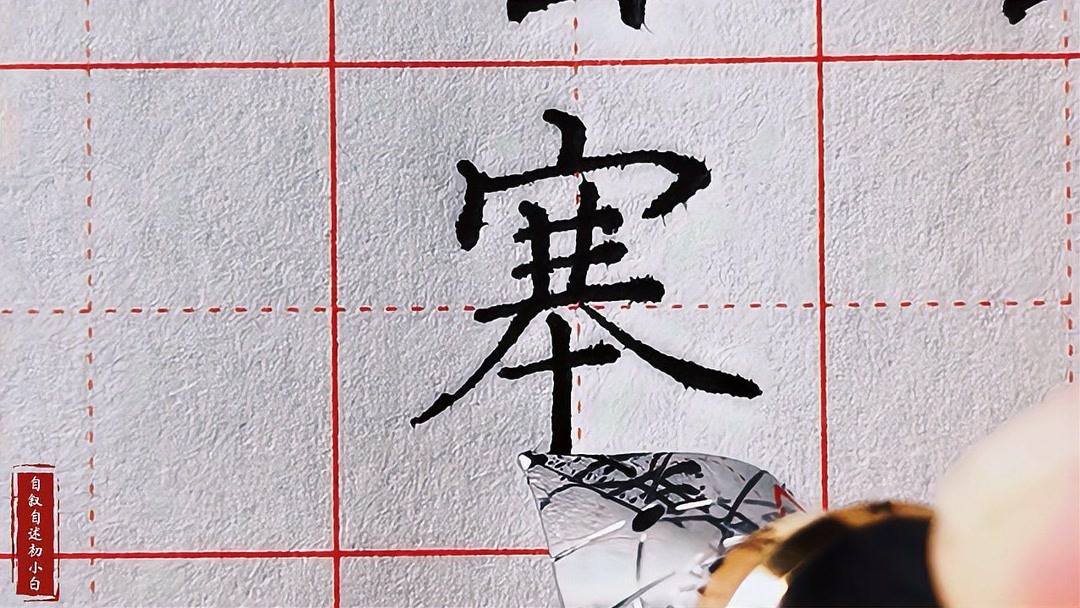 塞
自叙自述初小白